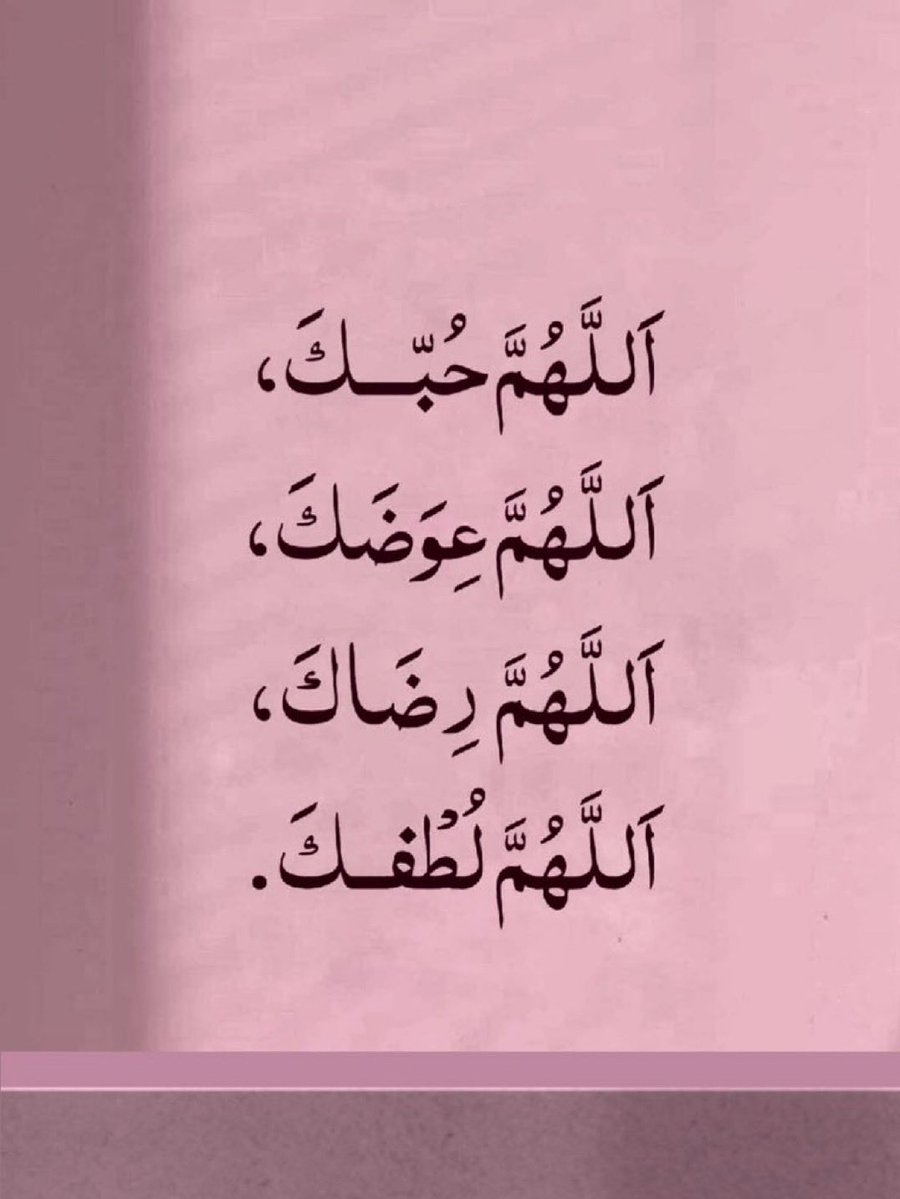 اَللَّهُمَّ حُبّــكَ،
اَللَّهُمَّ عِوَضَكَ،
اَللَّهُمَّ رِضَاكَ،
اَللَّهُمَّ لُطْفــكَ.